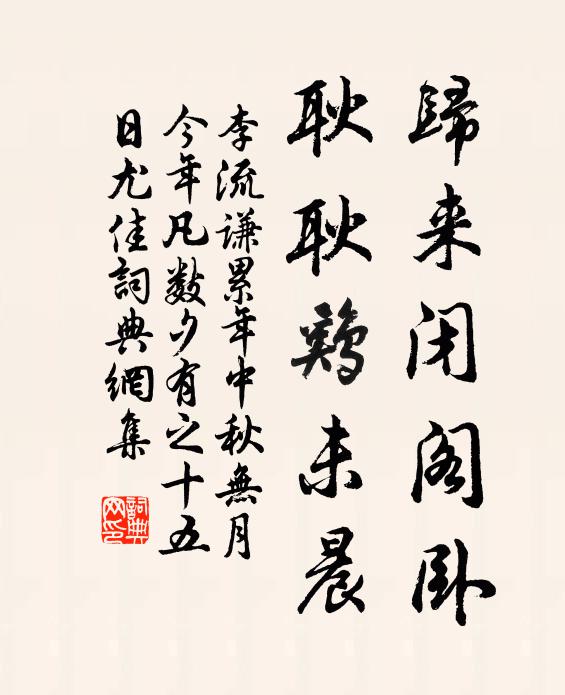 歸来闭阁卧
耿耿鷄未晨
李流谦累年中秋無月
今年凡數夕有之十五
日尤佳詞典網集
詞典网印